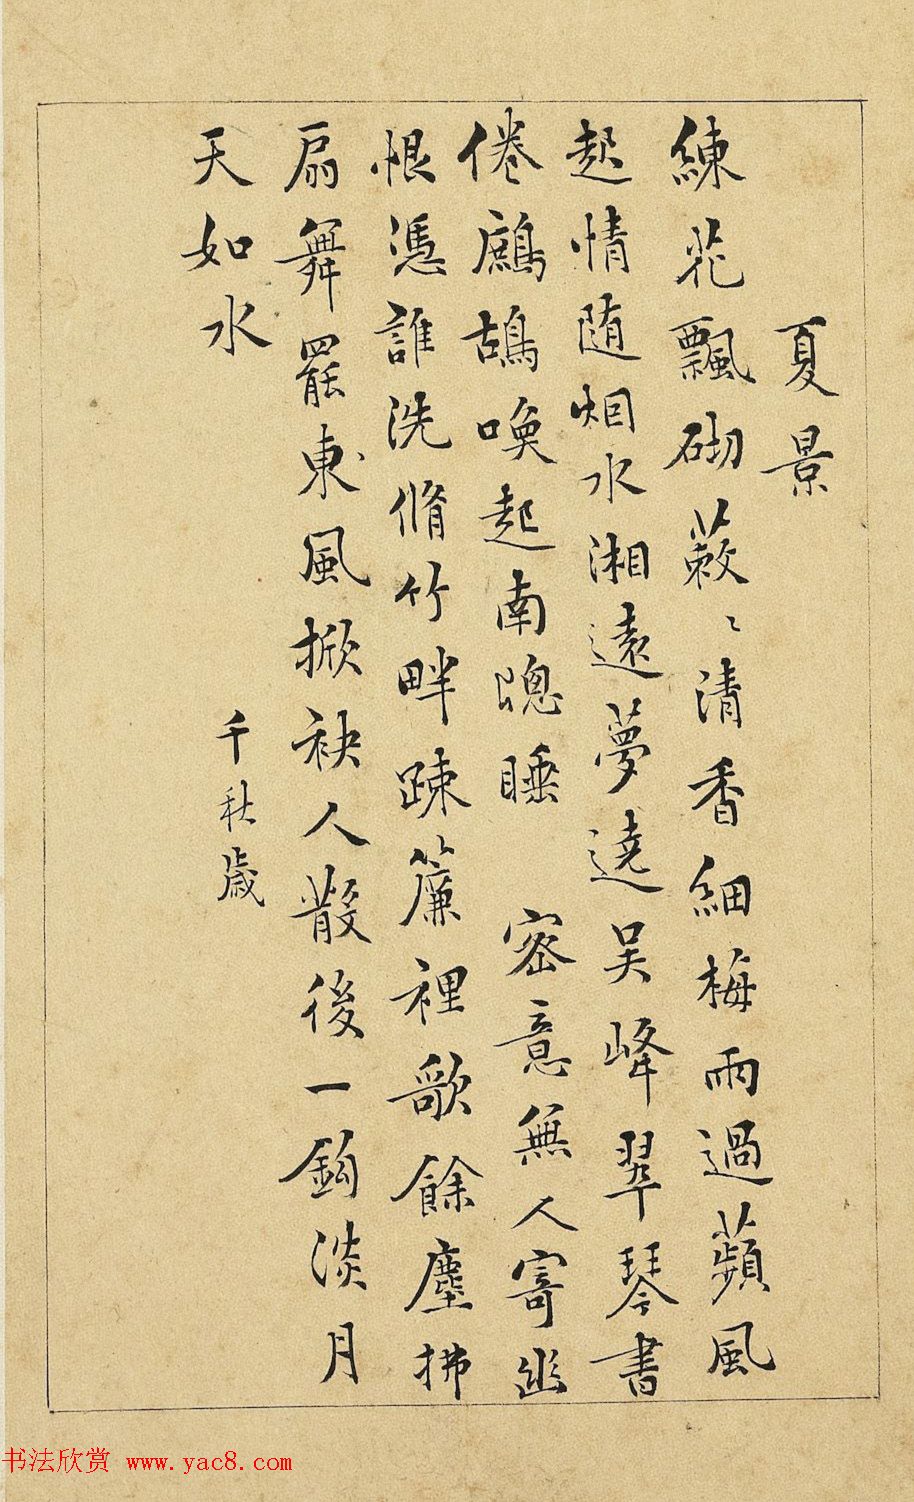 夏景
練花飄砌蔌〻清香細梅雨過蘋風
起情随烟水湘遠夢遶吴峰翠琴書
倦鷓鴣喚起南牕睡　密意無人寄幽
恨憑誰洗脩竹畔踈簾裡歌餘塵拂
扇舞罷東風掀袂人散後一鈎淡月
天如水
千秋歲
书法欣赏 www.yac8.com